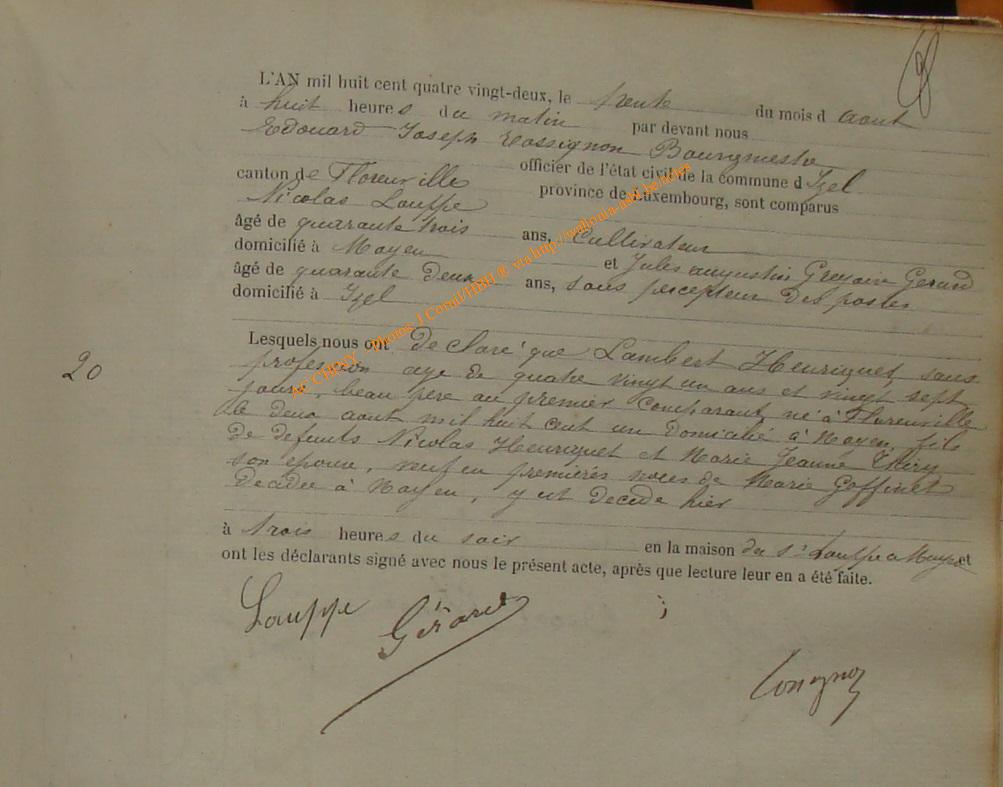 L'AN mil huit cent quatre vingt-deux, le trente du mois d aout
à huit heures du matin par devant nous
Edouard Joseph Rossignon Bourgmestre
officier de l'état civil de la commune d Izel
canton de Florenville province de Luxembourg, sont comparus
Nicolas Louppe
âgé de quarante trois ans, Cultivateur
domicilié à Moyen et Jules augustin Grégoire Gerard
âgé de quarante deux ans, sous percepteur des postes
domicilié à Izel
Lesquels nous ont declaré que Lambert Henriquet, sans
profession agé de quatre vingt un ans et vingt sept
jours, beau père au premier comparant, né à Florenville
le deux aout mil huit cent un domicilié à Moyen, fils
de defunts Nicolas Henriquet et Marie Jeanne Thiry
son epouse, veuf en premières noces de Marie Goffinet
décédée à Moyen, y est décédé hier
20
à trois heures du soir en la maison du Sr Louppe a Moyen et
ont les déclarants signé avec nous le présent acte, après que lecture leur en a été faite.
Louppe Gérard
AC CHINY - Photos J Conil/HBH ® via http://wallonia-asbl.be/actes